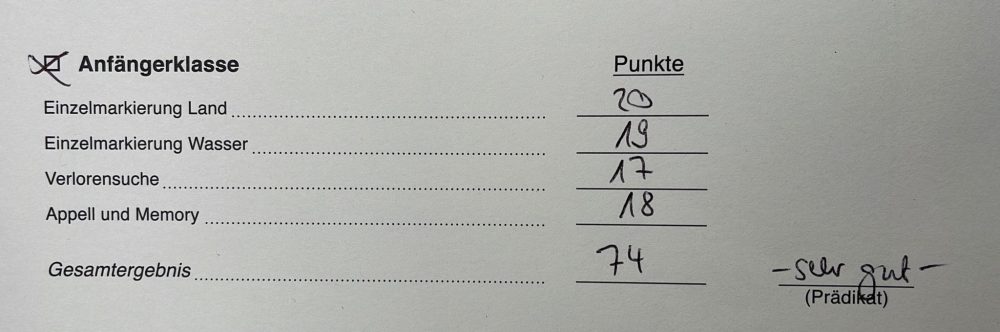 Anfängerklasse Punkte
Einzelmarkierung Land 20
Einzelmarkierung Wasser 19
Verlorensuche 17
Appell und Memory 18
Gesamtergebnis 74
- sehr gut -
(Prädikat)